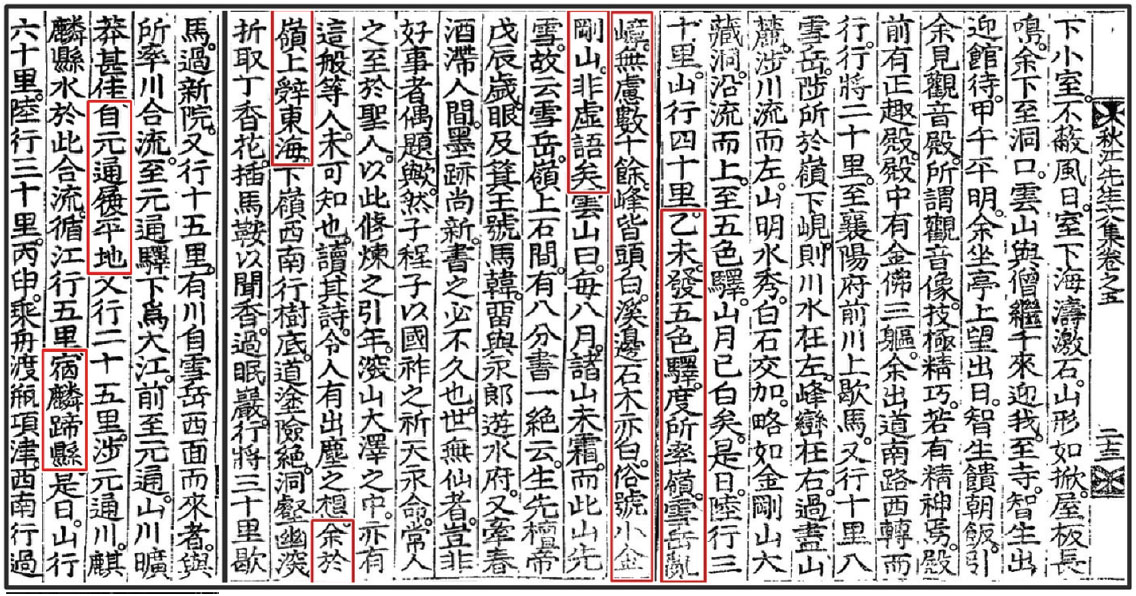 秋江先生文集卷之五 二十三
下小室。不蔽風日。室下海濤激石。山形如掀。屋板長
鳴。余下至洞口。雲山與僧繼千來迎我。至寺。智生出
迎館待。甲午平明。余坐亭上望出日。智生饋朝飯。引
余見觀音殿。所謂觀音像。技極精巧。若有精神焉。殿
前有正趣殿。殿中有金佛三軀。余出道南路西轉而
行。行將二十里。至襄陽府前川上歇馬。又行十里入
雪岳。陟所於嶺下峴。則川水在左。峰巒在右。過盡山
麓。涉川流而左。山明水秀。白石交加。略如金剛山大
藏洞。沿流而上。至五色驛。山月已白矣。是日。陸行三
十里。山行四十里。乙未。發五色驛。度所率嶺。雪岳亂
嶂。無慮數十餘。峰皆頭白。溪邊石木亦白。俗號小金
剛山。非虛語矣。雲山曰。每八月。諸山未霜。而此山先
雪。故云雪岳。嶺上石間。有八分書一絶云。生先檀帝
戊辰歲。眼及箕王號馬韓。留與永郎遊水府。又牽春
酒滯人間。墨跡尚新。書之必不久也。世無仙者。豈非
好事者偶題歟。然子程子以國祚之祈天永命。常人
之至於聖人。以此修煉之引年。深山大澤之中。亦有
這般等人。未可知也。讀其詩。令人有出塵之想。余於
嶺上辭東海。下嶺西南行。樹底道途險絶。洞壑幽深
折取丁香花。揷馬鞍以聞香。過眠巖。行將三十里歇
馬。過新院。又行十五里。有川自雪岳西面而來者。與
所率川合流。至元通驛下爲大江。前至元通。山川曠
莽甚佳。自元通履平地。又行二十五里。涉元通川。麒
麟縣水於此合流。循江行五里。宿麟蹄縣。是日。山行
六十里。陸行三十里。丙申。乘舟渡甁項津。西南行過